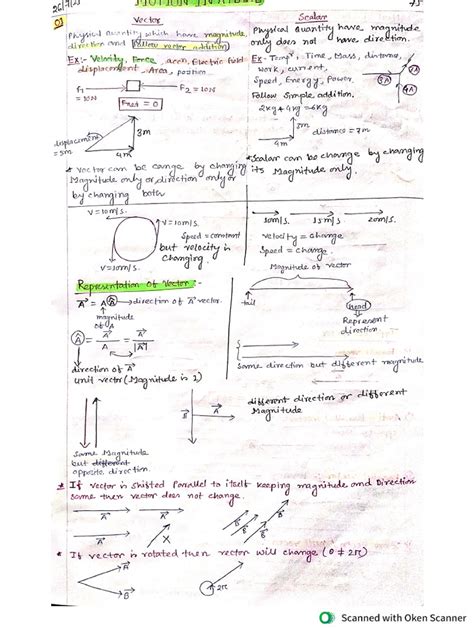 26/7/23
MOTION IN A PLANE
Q1
Vector
Physical Quantity which have magnitude,
direction and follow vector addition
Ex:- Velocity, Force, accn, Electric field
displacement, Area, position.
F1
= 10N
F2 = 10N
Fnet = 0
displacement
= 5m
3m
4m
* Vector can be cange by changing
Magnitude only or direction only or
by changing both
Scalar
Physical Quantity have magnitude
only does not have direction.
Ex- Temp, Time, Mass, distance,
work, current,
Speed, Energy, Power.
Follow Simple addition.
2kg + 4kg = 6kg
3m
4m
distance = 7m
*Scalar can be change by changing
its Magnitude only.
V=10m/s.
V=10m/s.
Speed = constant
but velocity is
changing.
V=10m/s
10m/s
15m/s
20m/s.
velocity = change
Speed = change.
Representation of Vector :-
A = A Â → direction of A vector.
magnitude
of A
Â = A/A = A/|A|
direction of A
unit vector (Magnitude is 1)
Magnitude of vector
tail
head
Represent
direction
Same direction but different magnitude
Same Magnitude
but different
opposite direction.
B
A
different direction or different
Magnitude
* If vector is shifted Parallel to itself keeping magnitude and Direction
same then vector does not change.
A
A
X
B
B
B
* If vector is rotated then vector will change (θ ≠ 2π)
A
B
2π
Scanned with Oken Scanner